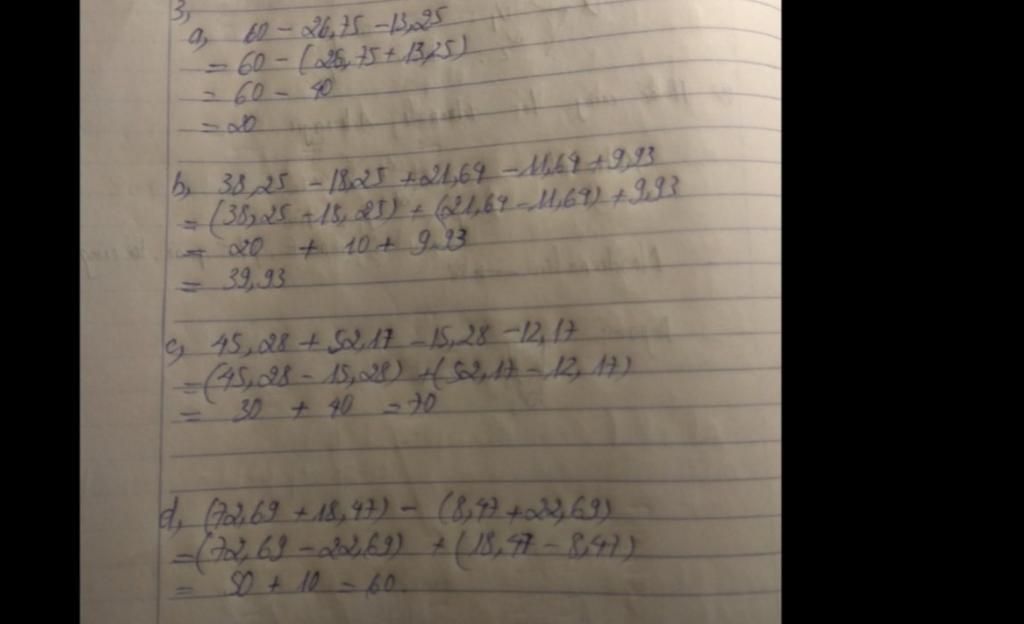 3,
a, 60 - 26,75 - 13,25
= 60 - (26,75 + 13,25)
= 60 - 40
= 20
b, 38,25 - 18,25 + 21,64 - 11,64 + 9,93
= (38,25 - 18,25) + (21,64 - 11,64) + 9,93
= 20 + 10 + 9,93
= 39,93
c, 45,28 + 52,17 - 15,28 - 12,17
= (45,28 - 15,28) + (52,17 - 12,17)
= 30 + 40 = 70
d, (72,69 + 18,47) - (8,47 + 22,69)
= (72,69 - 22,69) + (18,47 - 8,47)
= 50 + 10 = 60.